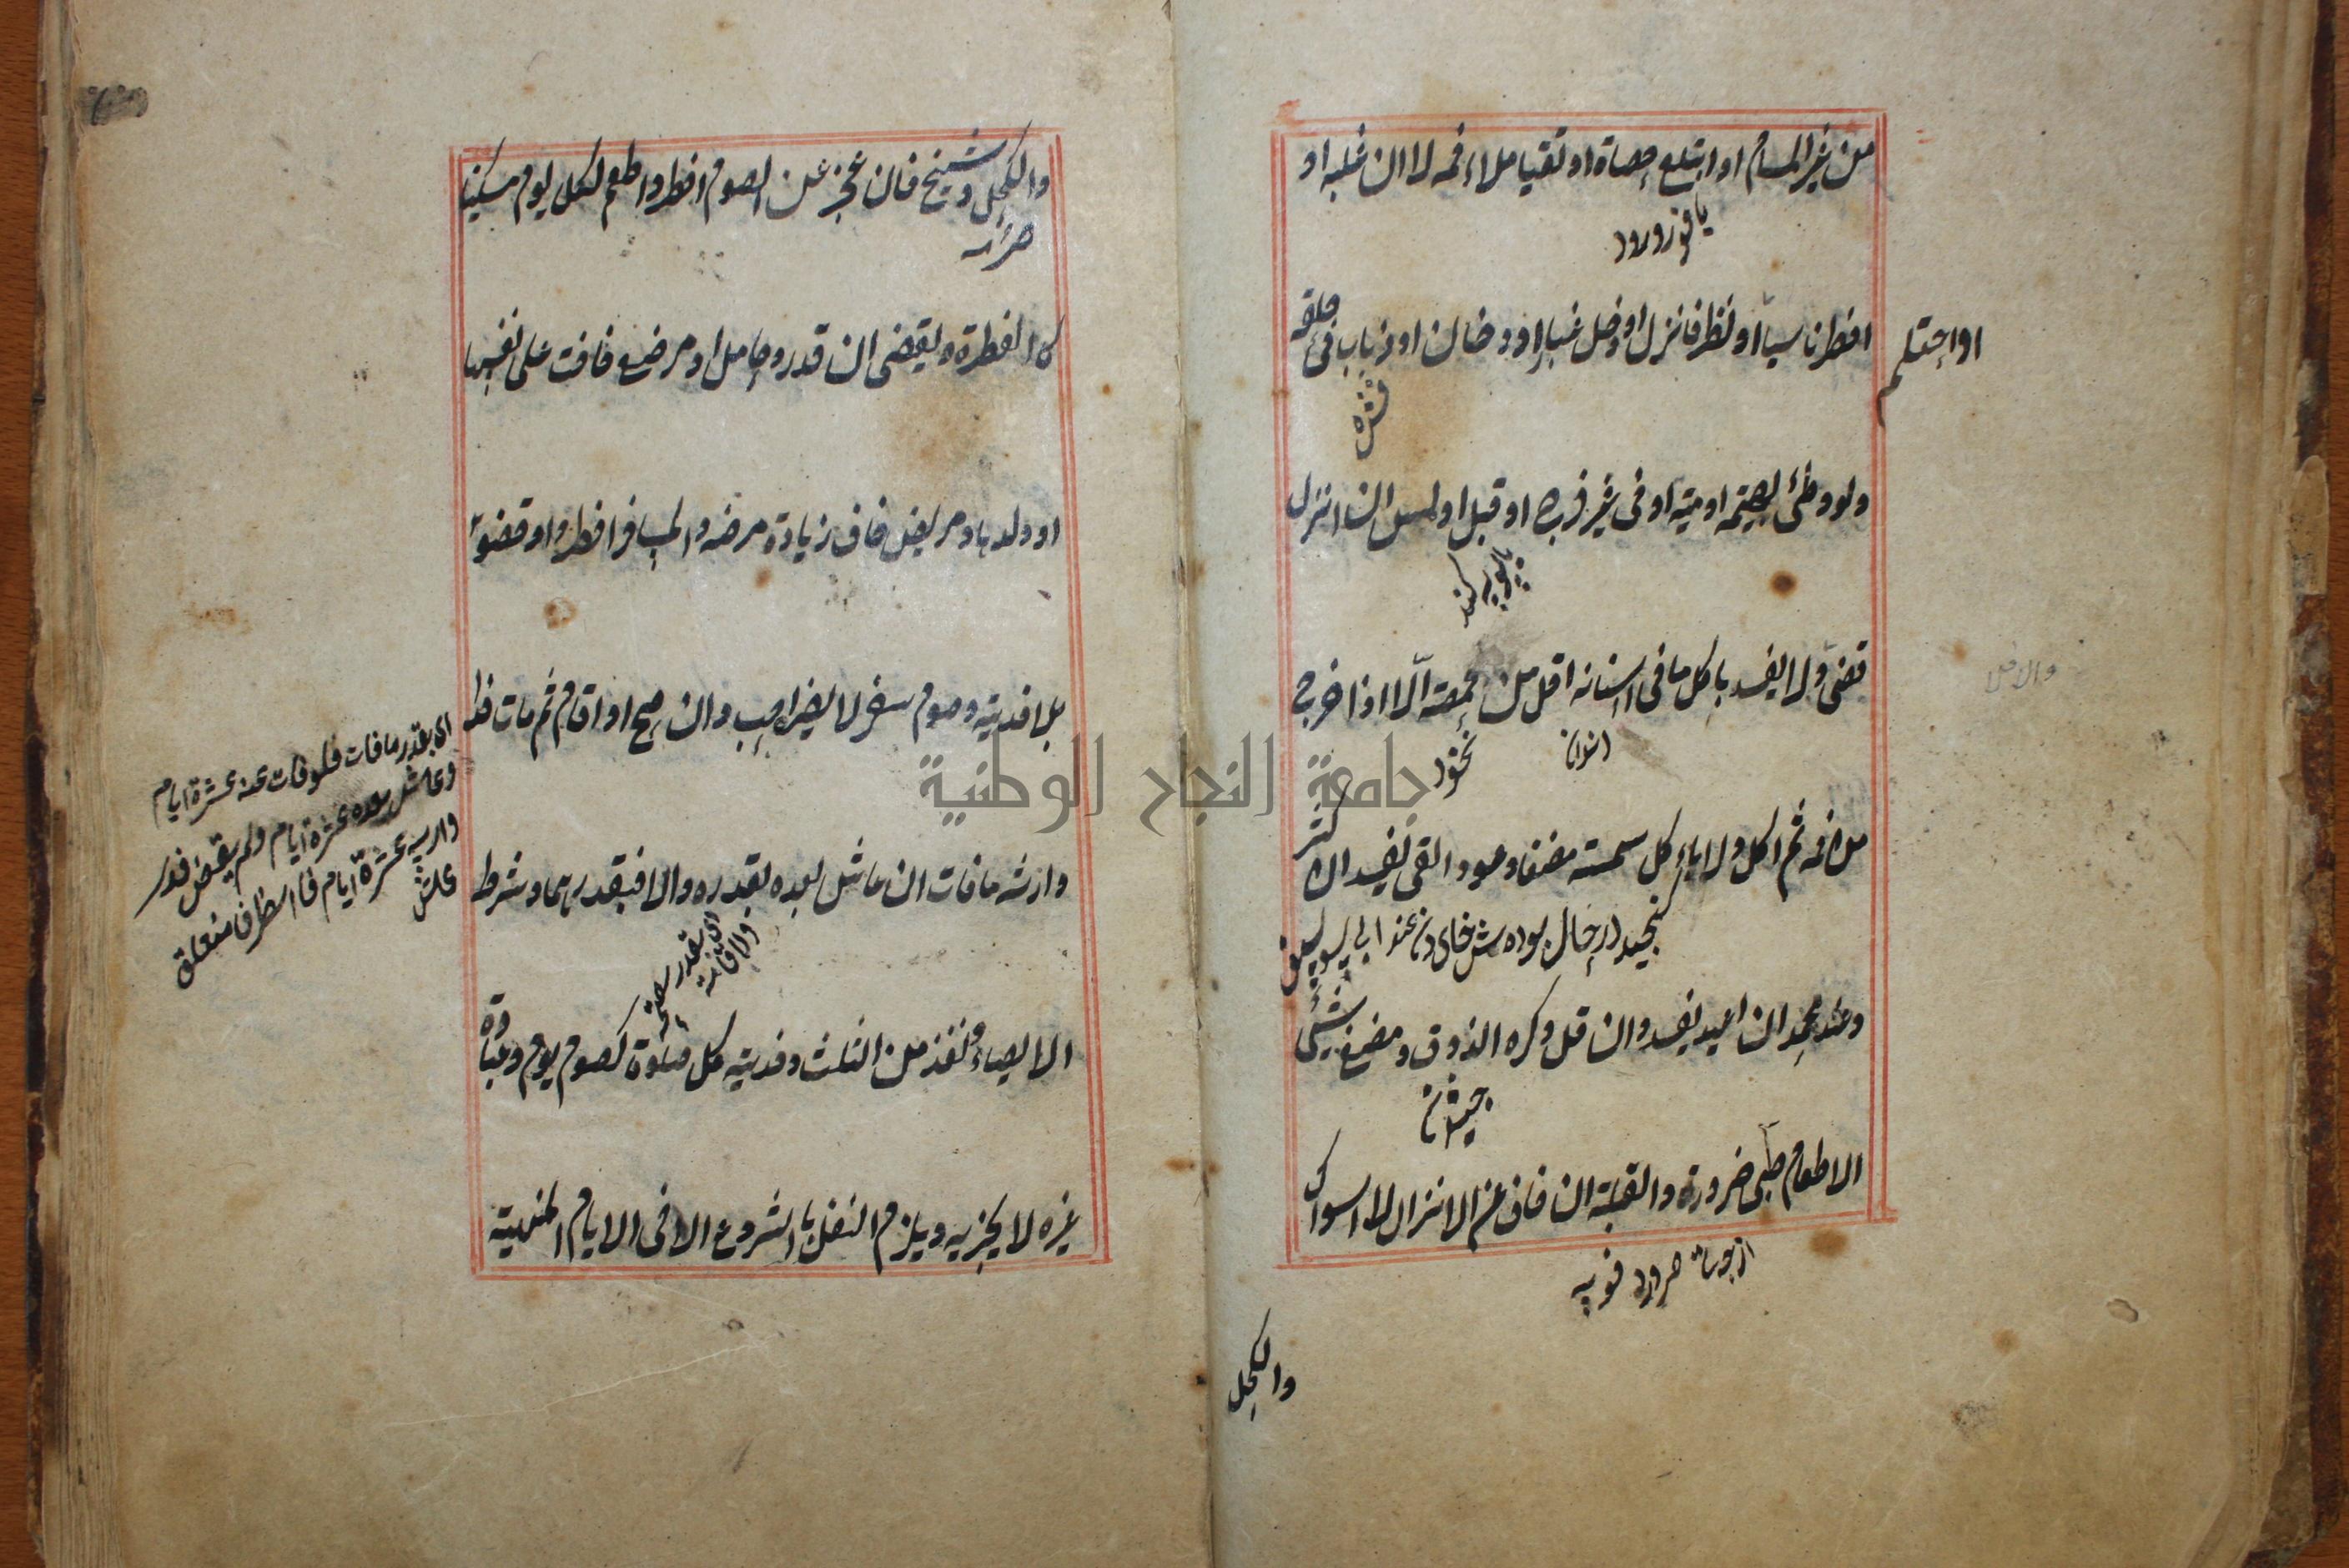 من غير المسام او ابتلع حصاة او تقيا ملاء فمه لا ان غلبه او
افطر ناسيا او نظر فانزل او دخل غبار او دخان او ذباب في حلقه
او احتلم
ولو وطئ بهيمة او ميتة او في غير فرج او قبل او لمس ان انزل
قضى ولا يفسد باكل ما في اسنانه اقل من حمصة الّا اذا اخرج
نخود
من فمه ثم اكل ولا باكل سمسة مضغا وعود القى يفسد ان كثر
عند ابى يوسف
وعند محمد ان اعيد يفسد وان قل وكره الذوق ومضغ شئ
الا طعام صبى ضرورة والقبلة ان خاف عن الانزال لا السواك
والكحل
والكحل وشيخ فان عجز عن الصوم افطر واطعم لكل يوم مسكينا
كالفطرة ويقضى ان قدر وحامل او مرضع خافت على نفسها
او ولدها ومريض خاف زيادة مرضه والمسافر افطروا وقضوا
بلا فدية وصوم سفر لا يضر احب وان صح او اقام ثم مات فدا
وارثه ما فات ان عاش بعده بقدره والا فبقدرهما وشرط
اى بقدر ما فات فلو فات عنه عشرة ايام
وعاش بعده عشرة ايام ولم يقض فدا
وارثه عشرة ايام
عاش
الايصاء ونفذ من الثلث وفدية كل صلوة كصوم يوم وعبادة
غيره لا يجزيه ويلزم النفل بالشروع الا في الايام المنهية
جامعة النجاح الوطنية